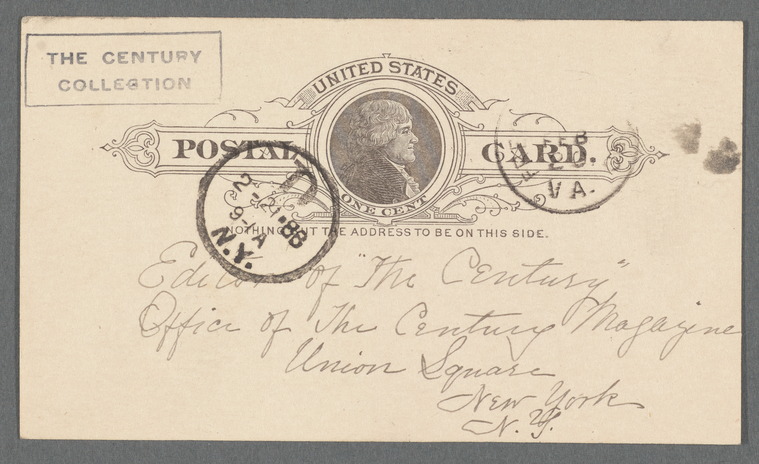 THE CENTURY
COLLECTION
UNITED STATES
POSTAL CARD.
ONE CENT
FEB
20
VA.
7
2-21-88
9-1A
N.Y.
NOTHING BUT THE ADDRESS TO BE ON THIS SIDE.
Editor of "The Century"
Office of The Century Magazine
Union Square
New York
N.Y.